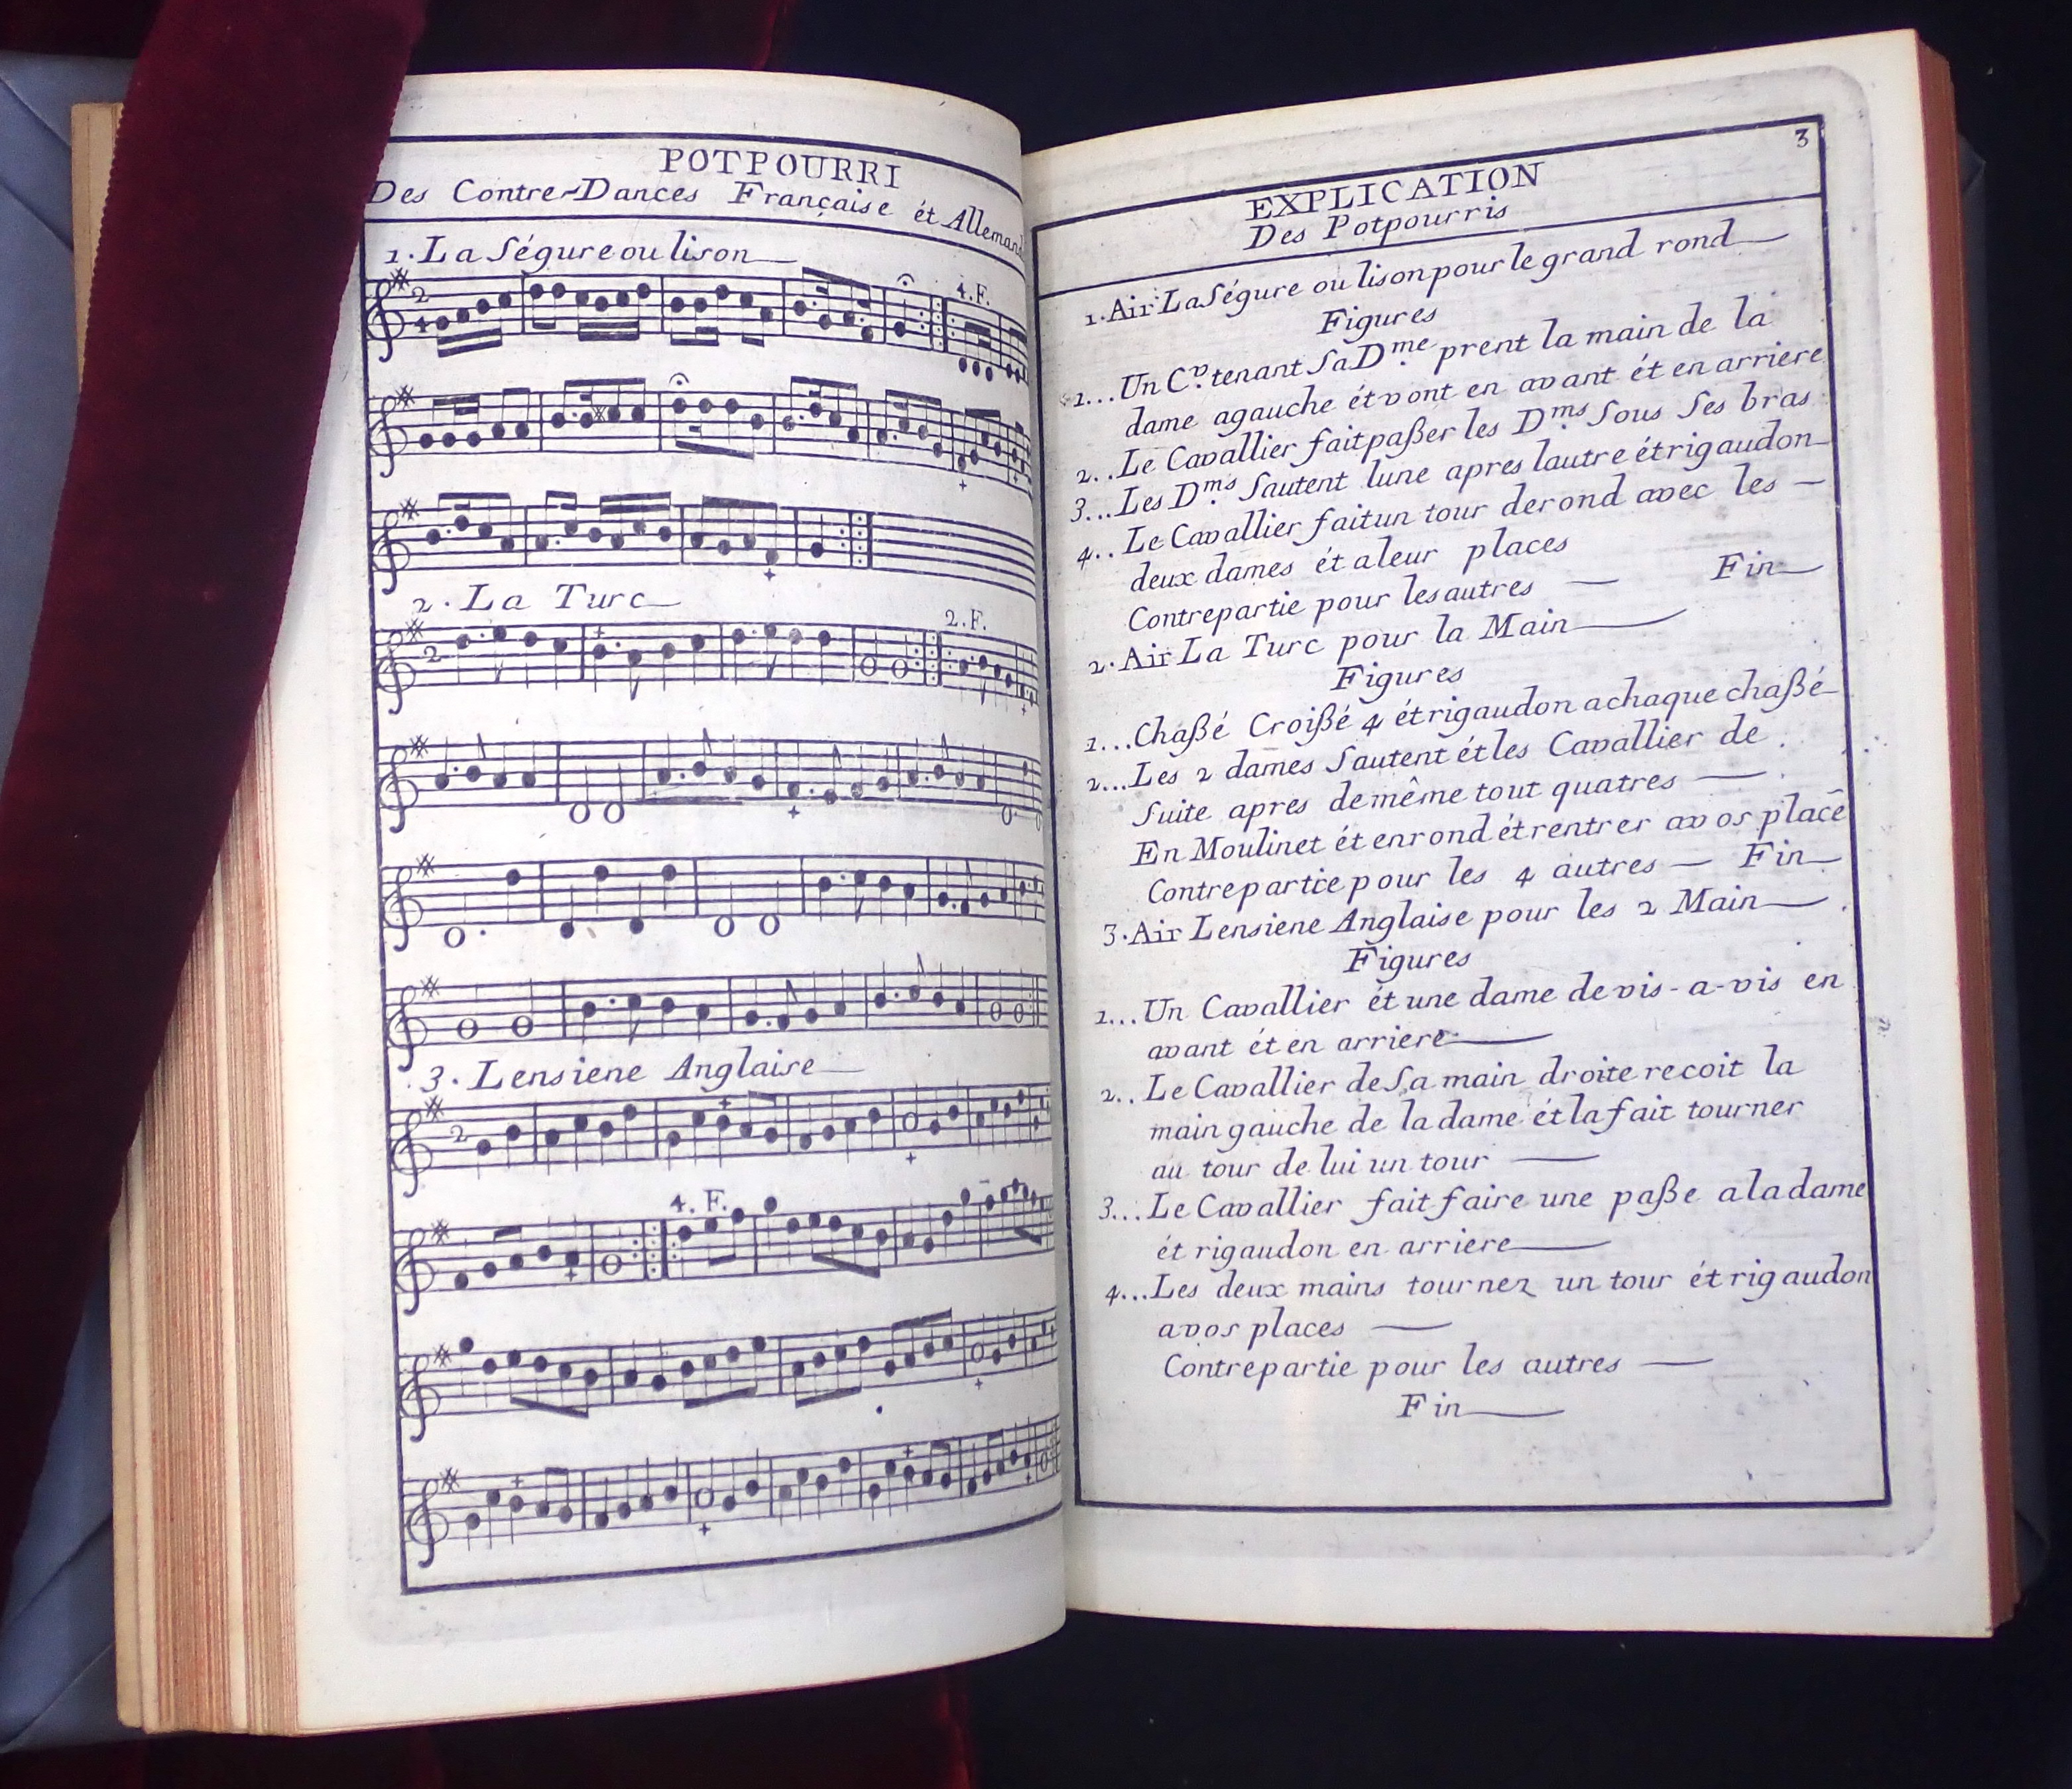 POTPOURRI
Des Contre-Dances Française ét Allemand
1. La Ségure ou lison
2
4
4. F.
2. La Turc
2
2. F.
3. Lensiene Anglaise
2
4. F.
3
EXPLICATION
Des Potpourris
1. Air La Ségure ou lison pour le grand rond
Figures
1... Un C.r tenant Sa D.me prent la main de la
dame agauche ét vont en avant ét en arriere
2... Le Cavallier fait paßer les D.ms Sous Ses bras
3... Les D.ms Sautent lune apres lautre ét rigaudon
4... Le Cavallier fait un tour de rond avec les
deux dames ét aleur places
Contrepartie pour les autres — Fin
2. Air La Turc pour la Main
Figures
1... Chaßé Croißé 4 ét rigaudon achaque chaßé
2... Les 2 dames Sautent ét les Cavallier de
Suite apres demême tout quatres
En Moulinet ét enrond ét rentrer avos place
Contrepartie pour les 4 autres — Fin
3. Air Lensiene Anglaise pour les 2 Main
Figures
1... Un Cavallier ét une dame de vis-a-vis en
avant ét en arriere
2.. Le Cavallier de Sa main droite recoit la
main gauche de la dame ét la fait tourner
au tour de lui un tour
3... Le Cavallier fait faire une paße a la dame
ét rigaudon en arriere
4... Les deux mains tournez un tour ét rigaudon
avos places
Contrepartie pour les autres
Fin